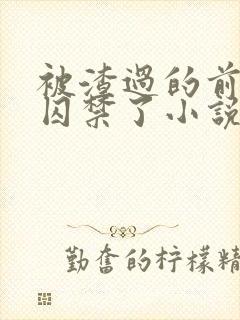 被渣过的前
囚禁了小说
勤奋的柠檬精